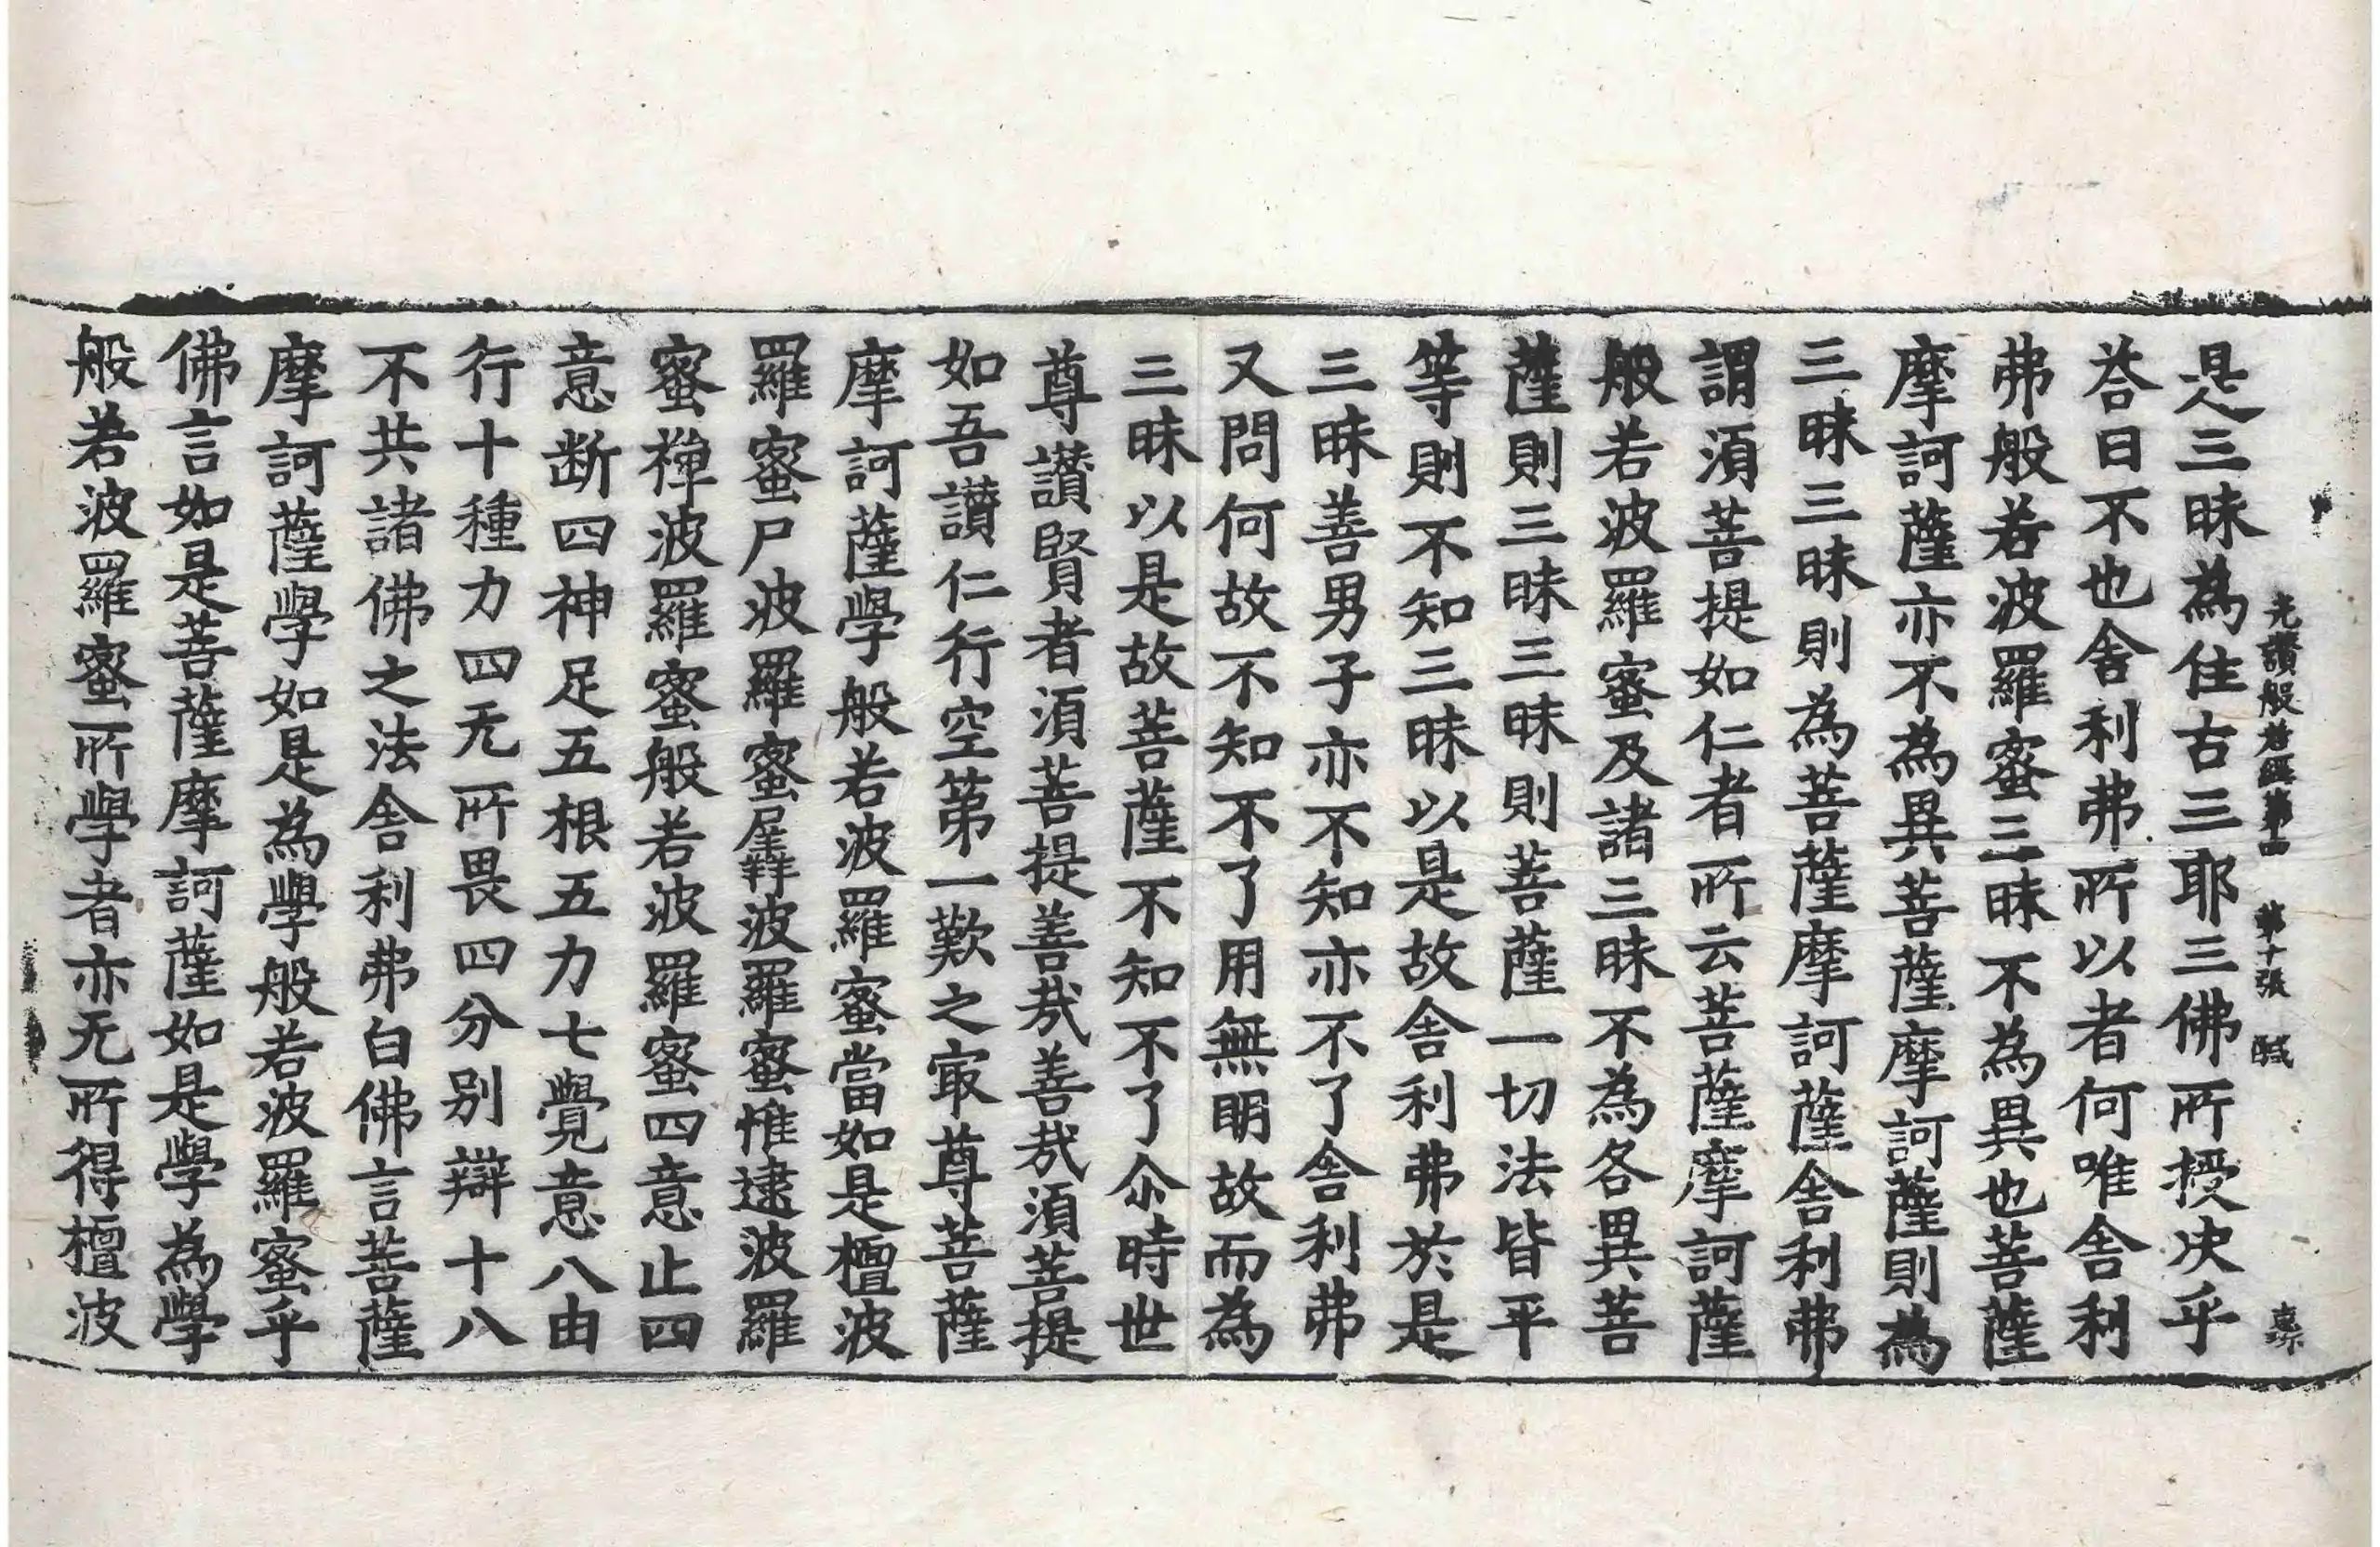 光讃般若經第四　第十張　醎
是三昧為住古三耶三佛所授决乎
荅曰不也舍利弗所以者何唯舍利
弗般若波羅蜜三昧不為異也菩薩
摩訶薩亦不為異菩薩摩訶薩則為
三昧三昧則為菩薩摩訶薩舍利弗
謂湏菩提如仁者所云菩薩摩訶薩
般若波羅蜜及諸三昧不為各異菩
薩則三昧三昧則菩薩一切法皆平
等則不知三昧以是故舍利弗於是
三昧善男子亦不知亦不了舍利弗
又問何故不知不了用無明故而為
三昧以是故菩薩不知不了尒時世
尊讃賢者湏菩提善哉善哉湏菩提
如吾讃仁行空第一歎之㝡尊菩薩
摩訶薩學般若波羅蜜當如是檀波
羅蜜尸波羅蜜羼波羅蜜惟逮波羅
蜜禪波羅蜜般若波羅蜜四意止四
意断四神足五根五力七覺意八由
行十種力四无所畏四分別辯十八
不共諸佛之法舍利弗白佛言菩薩
摩訶薩學如是為學般若波羅蜜乎
佛言如是菩薩摩訶薩如是學為學
般若波羅蜜所學者亦无所得檀波